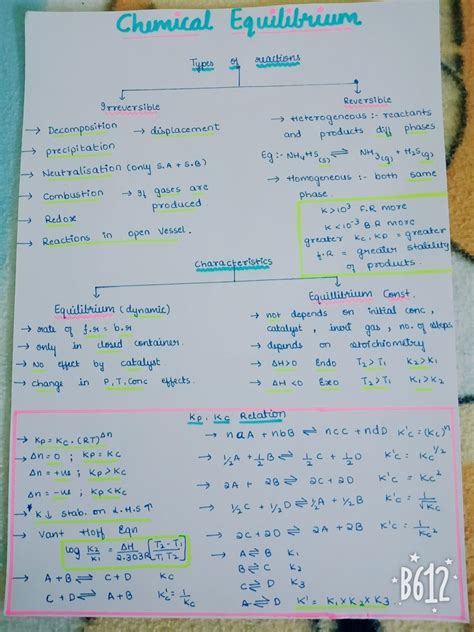 Chemical Equilibrium
Types of reactions
Irreversible
→ Decomposition → displacement
→ precipitation
→ Neutralisation (only S.A + S.B)
→ Combustion → If gases are produced
→ Redox
→ Reactions in open Vessel.
Reversible
→ Heterogeneous :- reactants
and products diff phases
Eg :- NH4HS(s) ⇌ NH3(g) + H2S(g)
→ Homogeneous :- both same
phase.
K > 10³ F.R more
K < 10⁻³ B.R more
greater Kc, Kp = greater
f.R = greater stability
of products.
Characteristics
Equilibrium (dynamic)
→ rate of f.r = b.r
→ only in closed container.
→ No effect by catalyst
→ change in P, T, conc effects.
Equillibrium Const.
→ not depends on initial conc,
catalyst, inert gas, no. of steps
→ depends on stoichiometry
→ ΔH>0 Endo T2>T1 K2>K1
→ ΔH<0 Exo T2>T1 K1>K2
Kp, Kc Relation
→ Kp = Kc . (RT)^Δn
→ Δn = 0 ; Kp = Kc
→ Δn = +ve ; Kp > Kc
Δn = -ve ; Kp < Kc
→ K↓ stab. on L.H.S ↑
→ Vant Hoff Eqn
log K2/K1 = ΔH/2.303R [T2 - T1/T1 T2]
→ A + B ⇌ C + D Kc
C + D ⇌ A + B K'c = 1/Kc
→ naA + nbB ⇌ ncC + ndD K'c = (Kc)^n
→ 1/2 A + 1/2 B ⇌ 1/2 C + 1/2 D K'c = Kc^1/2
→ 2A + 2B ⇌ 2C + 2D K'c = Kc²
→ 1/2 C + 1/2 D ⇌ 1/2 A + 1/2 B K'c = 1/√Kc
→ 2C + 2D ⇌ 2A + 2B K'c = 1/Kc²
→ A ⇌ B K1
B ⇌ C K2
C ⇌ D K3
A ⇌ D K' = K1 × K2 × K3
B612